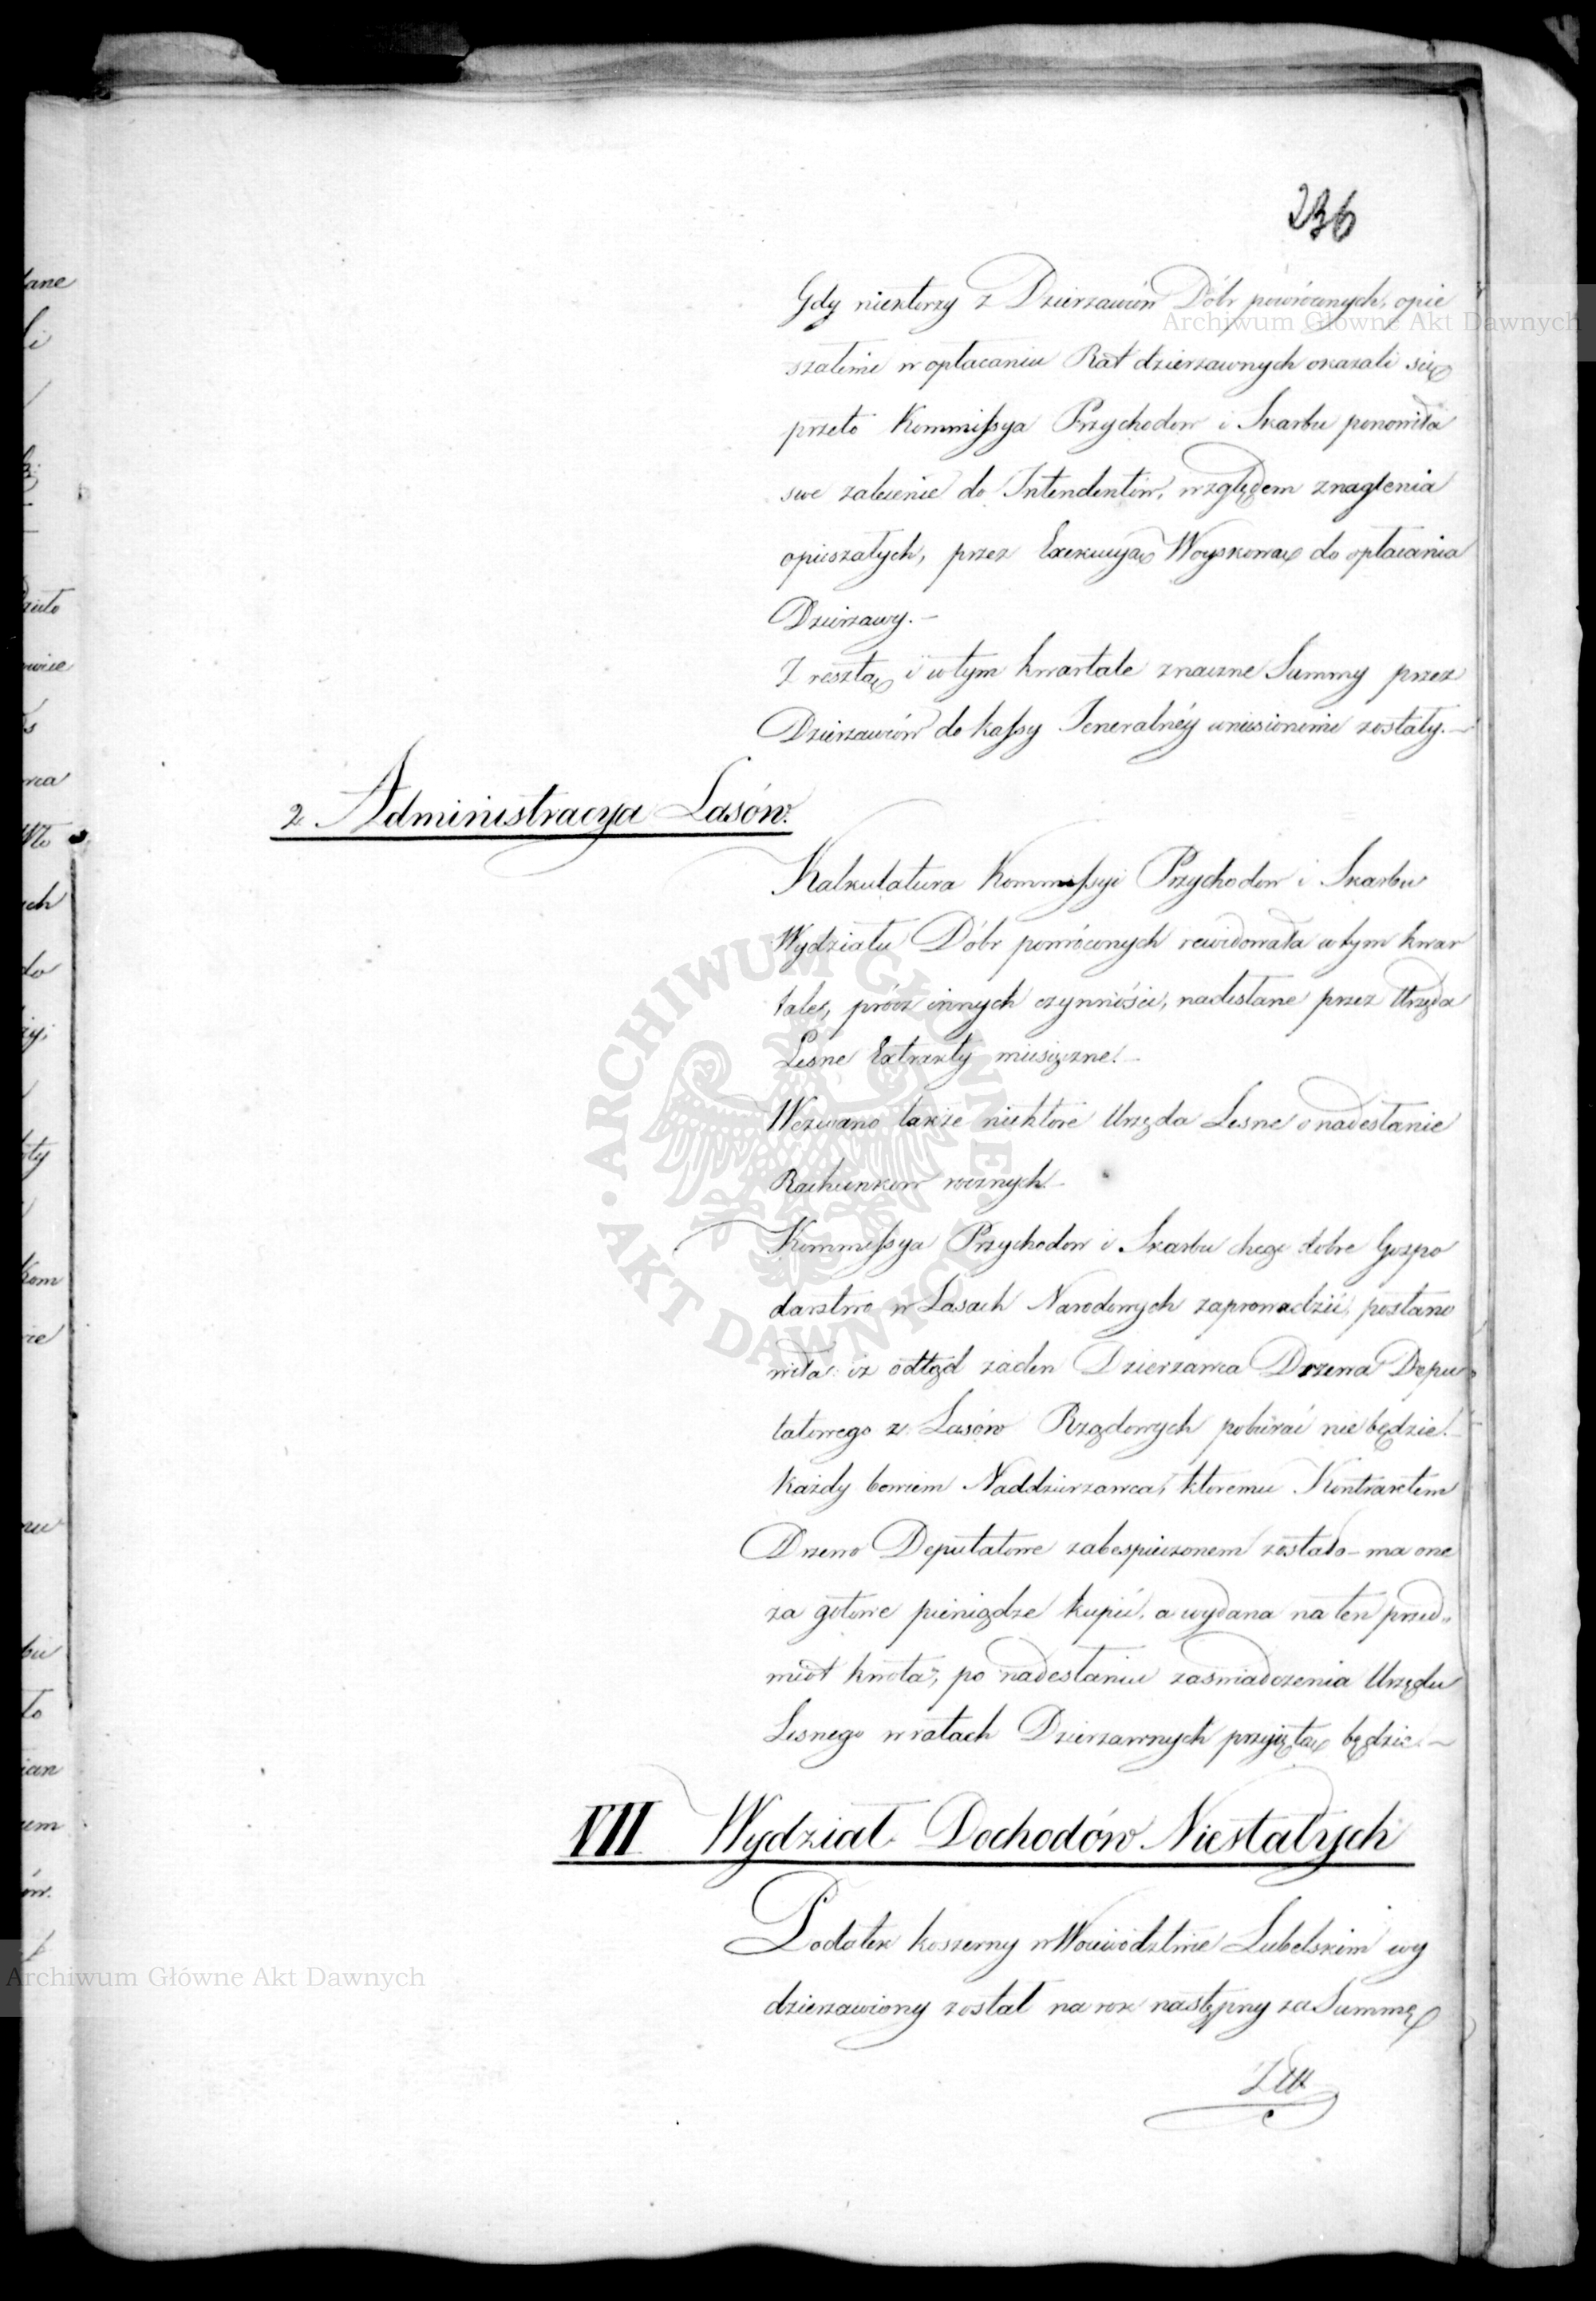 236
Gdy niektorzy z Dzierzawców Dóbr powróconych, opie
szałemi w opłacaniu Rat dzierzawnych okazali się
przeto Kommissya Przychodow i Skarbu ponowiła
swe zalecenie do Intendentów, względem znaglenia
opieszałych, przez Exekucyą Woyskową do opłacania
Dzierzawy.—
Z resztą i w tym kwartale znaczne Summy przez
Dzierzawców do kassy Jeneralnéy wniesionemi zostały.—
2. Administracya Lasów.
Kalkulatura Kommissyi Przychodow i Skarbu
Wydziału Dóbr powróconych rewidowała w tym kwar
tale, prócz innych czynności, nadesłane przez Urzęda
Lesne Extrakty miesięczne.—
Wezwano także niektóre Urzęda Lesne o nadesłanie
Rachunkow rocznych.—
Kommissya Przychodow i Skarbu chcąc dobre Gospo
darstwo w Lasach Narodowych zaprowadzić, postano
wiła: iz odtąd żaden Dzierzawca Drzewa Depu
tatowego z Lasów Rządowych pobierać nie będzie.—
każdy bowiem Naddzierzawca, ktoremu Kontraktem
Drzewo Deputatowe zabespieczonem zostało — ma one
za gotowe pieniądze kupić, a wydana na ten przed„
miot kwota, po nadesłaniu zaświadczenia Urzędu
Lesnego w ratach Dzierzawnych przyiętą będzie.—
VII Wydział Dochodów Niestałych
Podatek koszerny w Woiewództwie Lubelskim wy
dzierzawiony został na rok następny za Summę
Archiwum Główne Akt Dawnych
Archiwum Główne Akt Dawnych